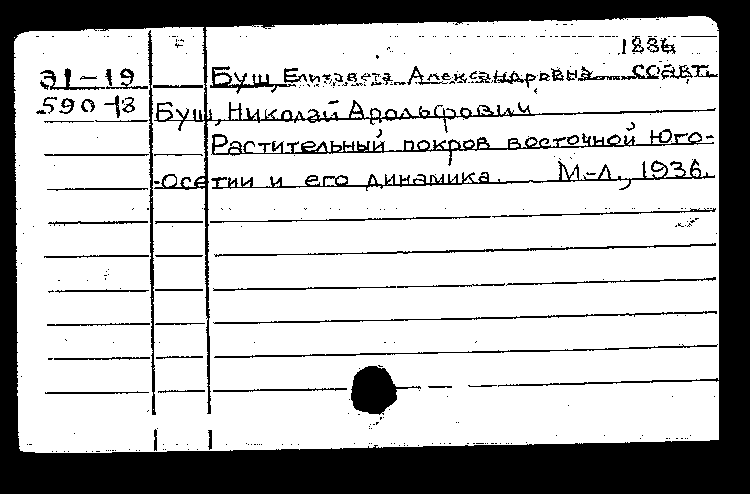 1886
31-19 Буш, Елизавета Александровна соавт.
590-13 Буш, Николай Адольфович
Растительный покров восточной Юго-
-Осетии и его динамика. М.-Л., 1936.